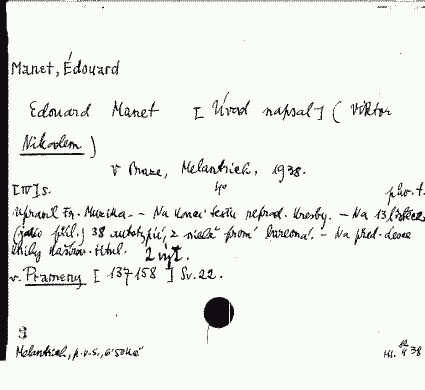 Manet, Édouard
Edouard Manet [Úvod napsal] (Viktor
Nikodem)
V Praze, Melantrich, 1938.
[IV] s. 4° pův. t.
Upravil Fr. Muzika. - Na konci textu reprod. kresby. - Na 13 listech
(jako příl.) 38 autotypií, z nichž první barevná. - Na před. desce
knihy
2 výt.
v. Prameny [137-158] Sv. 22.
Melantrich, p.v.s.,
38